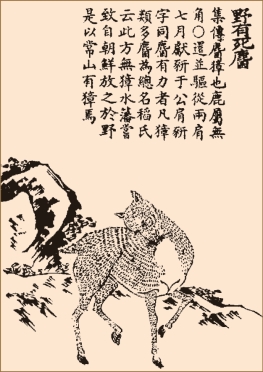 野有死麕
集傳麕獐也鹿屬無
角○還並驅從兩肩
七月獻豜于公肩豜
字同麕有力者凡獐
類多麕為總名稻氏
云此方無獐水藩嘗
致自朝鮮放之於野
是以常山有獐焉